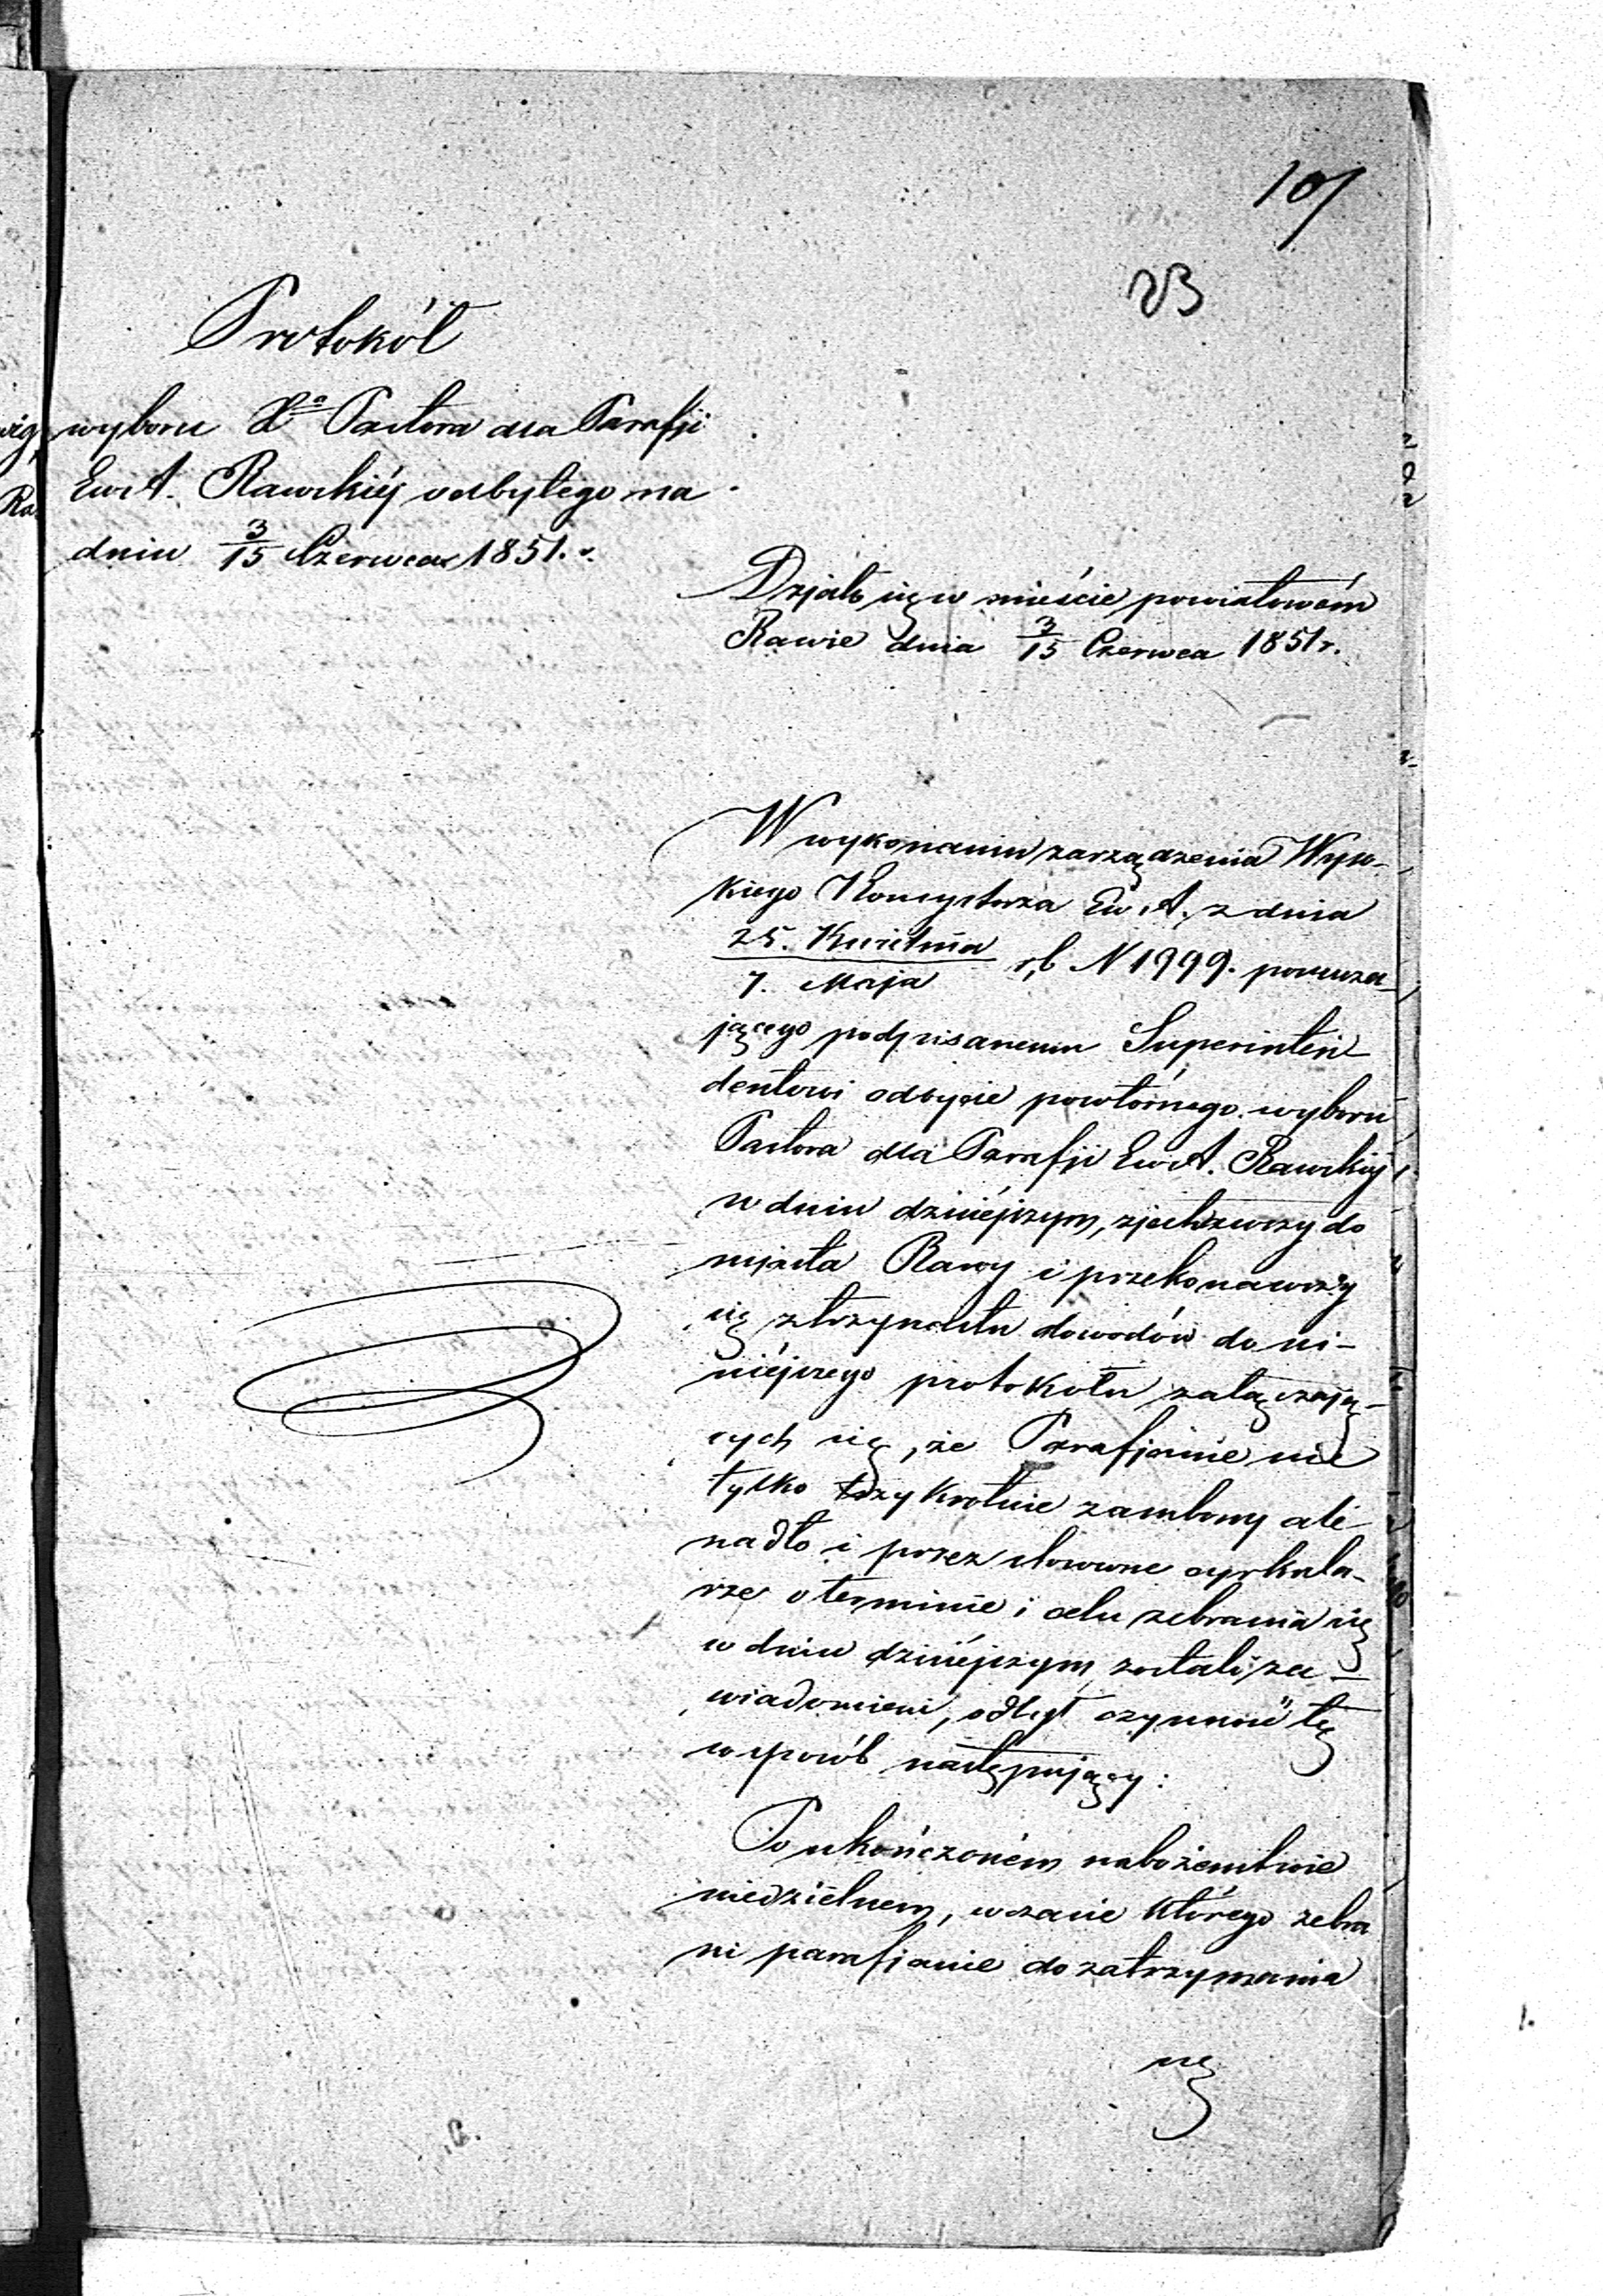 107
23
Protokół
wyboru Xa Pastora dla Parafji
Ew: A. Rawskiéj odbytego na
dniu 3/15 Czerwca 1851. r.
Działo się w mieście powiatowém
Rawie dnia 3/15 Czerwca 1851 r.
W wykonaniu zarządzenia Wyso-
kiego Konsystorza Ew. A. z dnia
25. Kwietnia
7. Maja r,b N 1999. porucza-
jącego podpisanemu Superinten
dentowi odbycie powtórnego wyboru
Pastora dla Parafji Ew: A. Rawskiéj
w dniu dzisiéjszym, zjechawszy do
miasta Rawy i przekonawszy
się z trzynastu dowodów do ni-
niéjszego protokółu załączają-
cych się, że Parafjanie nie
tylko trzykrotnie z ambony ale
nadto i przez stosowne cyrkula-
rze o terminie i celu zebrania się
w dniu dzisiéjszym zostali za-
wiadomieni, odbył czynność tę
w sposób następujący:
Po ukończoném nabożeństwie
niedzielnem, w czasie którego zebra
ni parafjanie do zatrzymania
się